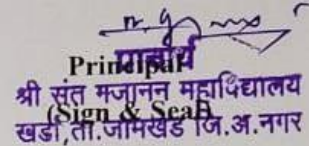 Principal
प्राचार्य
श्री संत गजानन महाविद्यालय
(Sign & Seal)
खर्डा, ता.जामखेड जि.अ.नगर